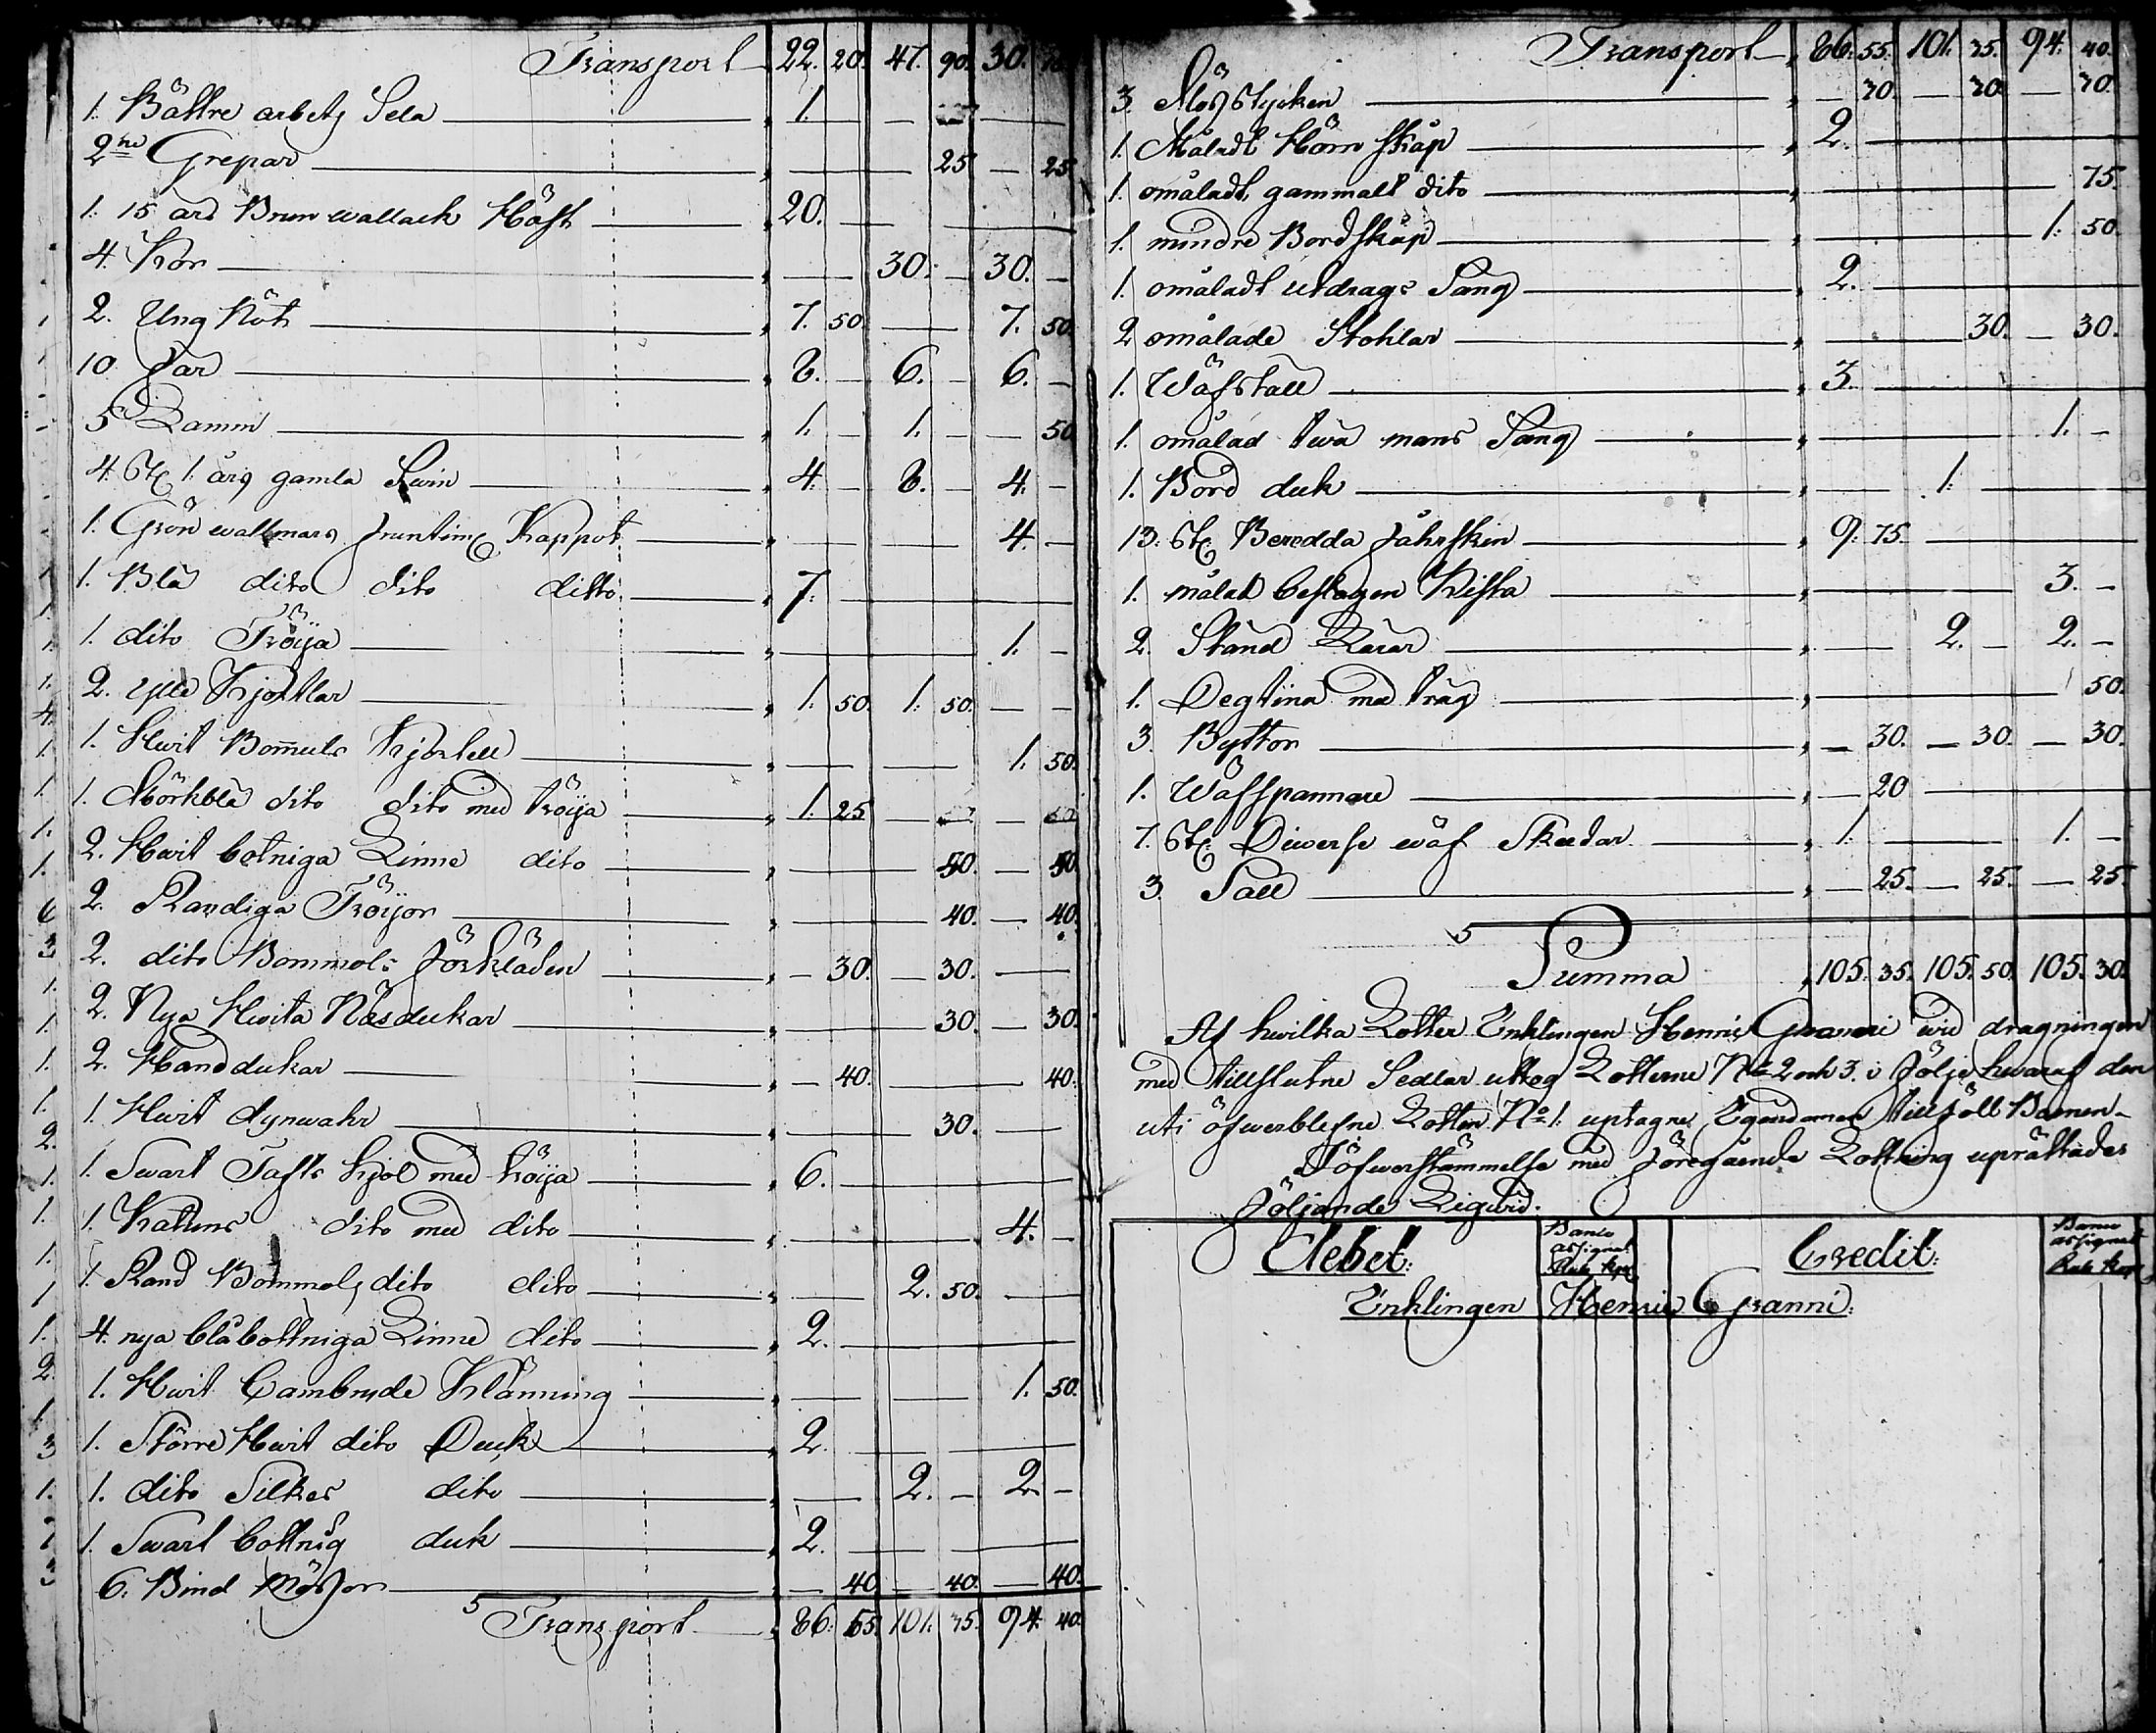 Transport 22. 20. 47. 90. 30.
1. Bättre arbets Sela 1.
2ne Grepar 25 25
1. 15 ård Brun wallack Häst 20.
4. Kor 30. 30.
2. Ung Nöt 7. 50. 7. 50.
10 Får 8. 6. 6.
5 Lamm 1. 1. 50
4. St. 1. års gamla Swin 4. 8. 4.
1. Grön wallmars fruntims Kappot 4.
1. Blå dito dito ditto. 7.
1. dito Tröija 1.
2. ylle Kjortlar 1. 50. 1. 50.
1. Hwit Bom̄uls Kjortell 1. 50.
1. Mörkblå dito dito med tröija 1. 25
2. Hwit botniga Linne dito 50. 50
2. Randiga Tröijor 40. 40.
2. dito Bommols Förkläden 30. 30.
2. Nya Hwita Näsdukar 30. 30.
2. Handdukar 40. 40.
1. Hwit dynwahr 30.
1. Swart Tafts kjol med tröija 6.
1. Kattuns dito med dito 4.
1. Rand Bommols dito dito 2. 50.
4. nya blåbottniga Linne dito 2.
1. Hwit Cambricks Klänning 1. 50.
1. Större Hwit dito Duuk 2.
1. dito Silkes dito 2. 2.
1. Swart bottnig duk 2.
6. Bind Mössor 40. 40. 40.
Transport 86. 55. 101. 75. 94. 40.
Transport 86. 55. 101. 75. 94. 40.
3. stycken 70. 70. 70.
1. Måladt Hörn skåp 2.
1. omåladt gammalt dito 75.
1. mindre Bordskåp 1. 50.
1. omåladt utdrags Säng 2.
2 omålade Stohlar 30. 30.
1. Wäfstall 3.
1. omålad twå mans Säng 1.
1. Bord duk 1.
13. St. Beredda Fåhrskin 9. 75.
1. målad beslagen Kista 3.
2. Stånd Kärar 2. 2.
1. Degtina med tråg 50.
3. Byttor 30. 30. 30.
1. Wäfspannare 20
7. St. Diwerse wäf Skedar 1. 1.
3. Såll 25. 25. 25.
Summa 105. 35. 105. 50. 105. 30.
Af hwilka Lotter Enklingen Henric Granni wid dragningen
med tillslutne Sedlar uttog Lotterne No 2 och 3. i följe hwaraf den
uti öfwerblefne Lotten No 1. uptagne Egendomen tillföll Barnen.
I öfwerstämmelse med föregående Lottning uprättades
följande Liqwid.
Debet: Banco assignat. Rub. Kop. Credit: Banco assignat. Rub. Kop.
Enklingen Henric Granni: